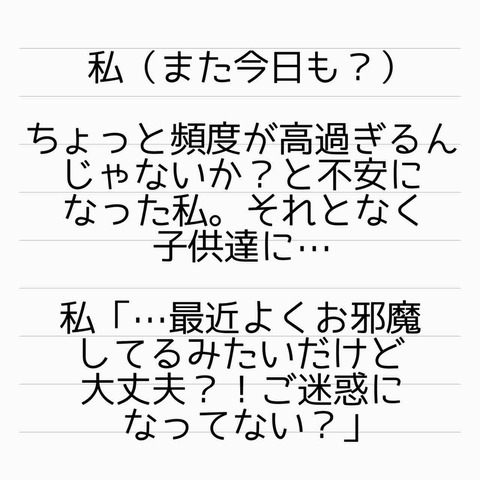 私（また今日も？）
ちょっと頻度が高過ぎるん
じゃないか？と不安に
なった私。それとなく
子供達に…
私「…最近よくお邪魔
してるみたいだけど
大丈夫？！ご迷惑に
なってない？」